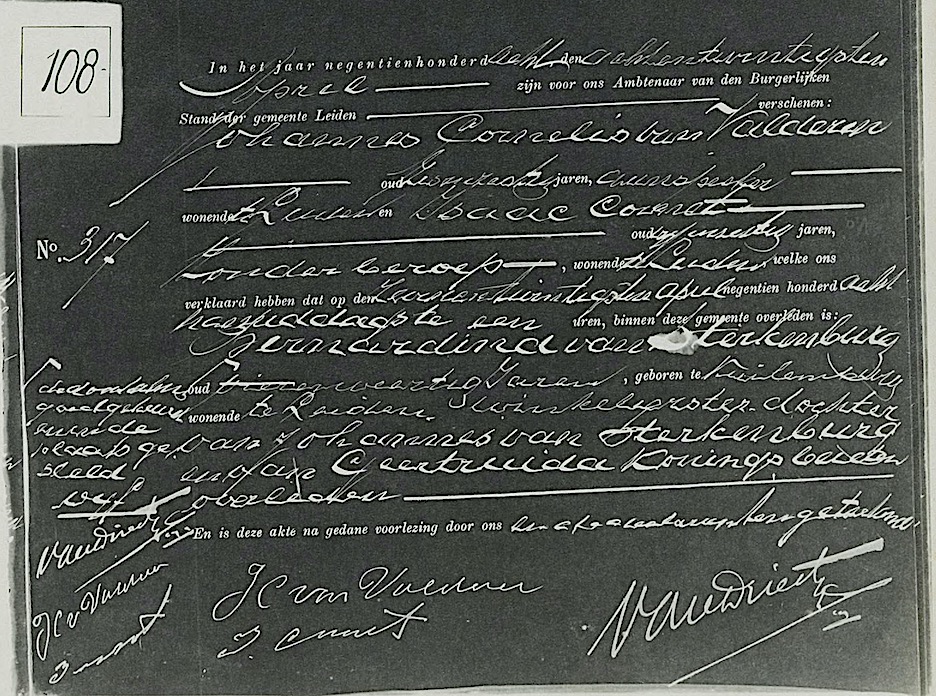 108-
In het jaar negentienhonderd acht den achtentwintigsten
April zijn voor ons Ambtenaar van den Burgerlijken
Stand der gemeente Leiden verschenen:
Johannes Cornelis van Valderen
oud jaren, aanspreker
wonende te Leiden en Isaac Cornet
oud jaren,
No. 317
zonder beroep, wonende te Leiden, welke ons
verklaard hebben dat op den zevenentwintigsten April negentien honderd acht
namiddags te een uren, binnen deze gemeente overleden is:
Bernardina van Sterkenburg
oud veertig Jaren, geboren te Kuilenburg
wonende te Leiden, winkelierster, dochter
van Johannes van Sterkenburg
en van Geertruida Koningsbeeren
overleden
En is deze akte na gedane voorlezing door ons
JC van Valderen
I. Cornet
van Driest
de doorhaling
goedgekeurd
en in de
plaats ge-
steld
vijf
van Driest
JC v Valderen
I Cornet